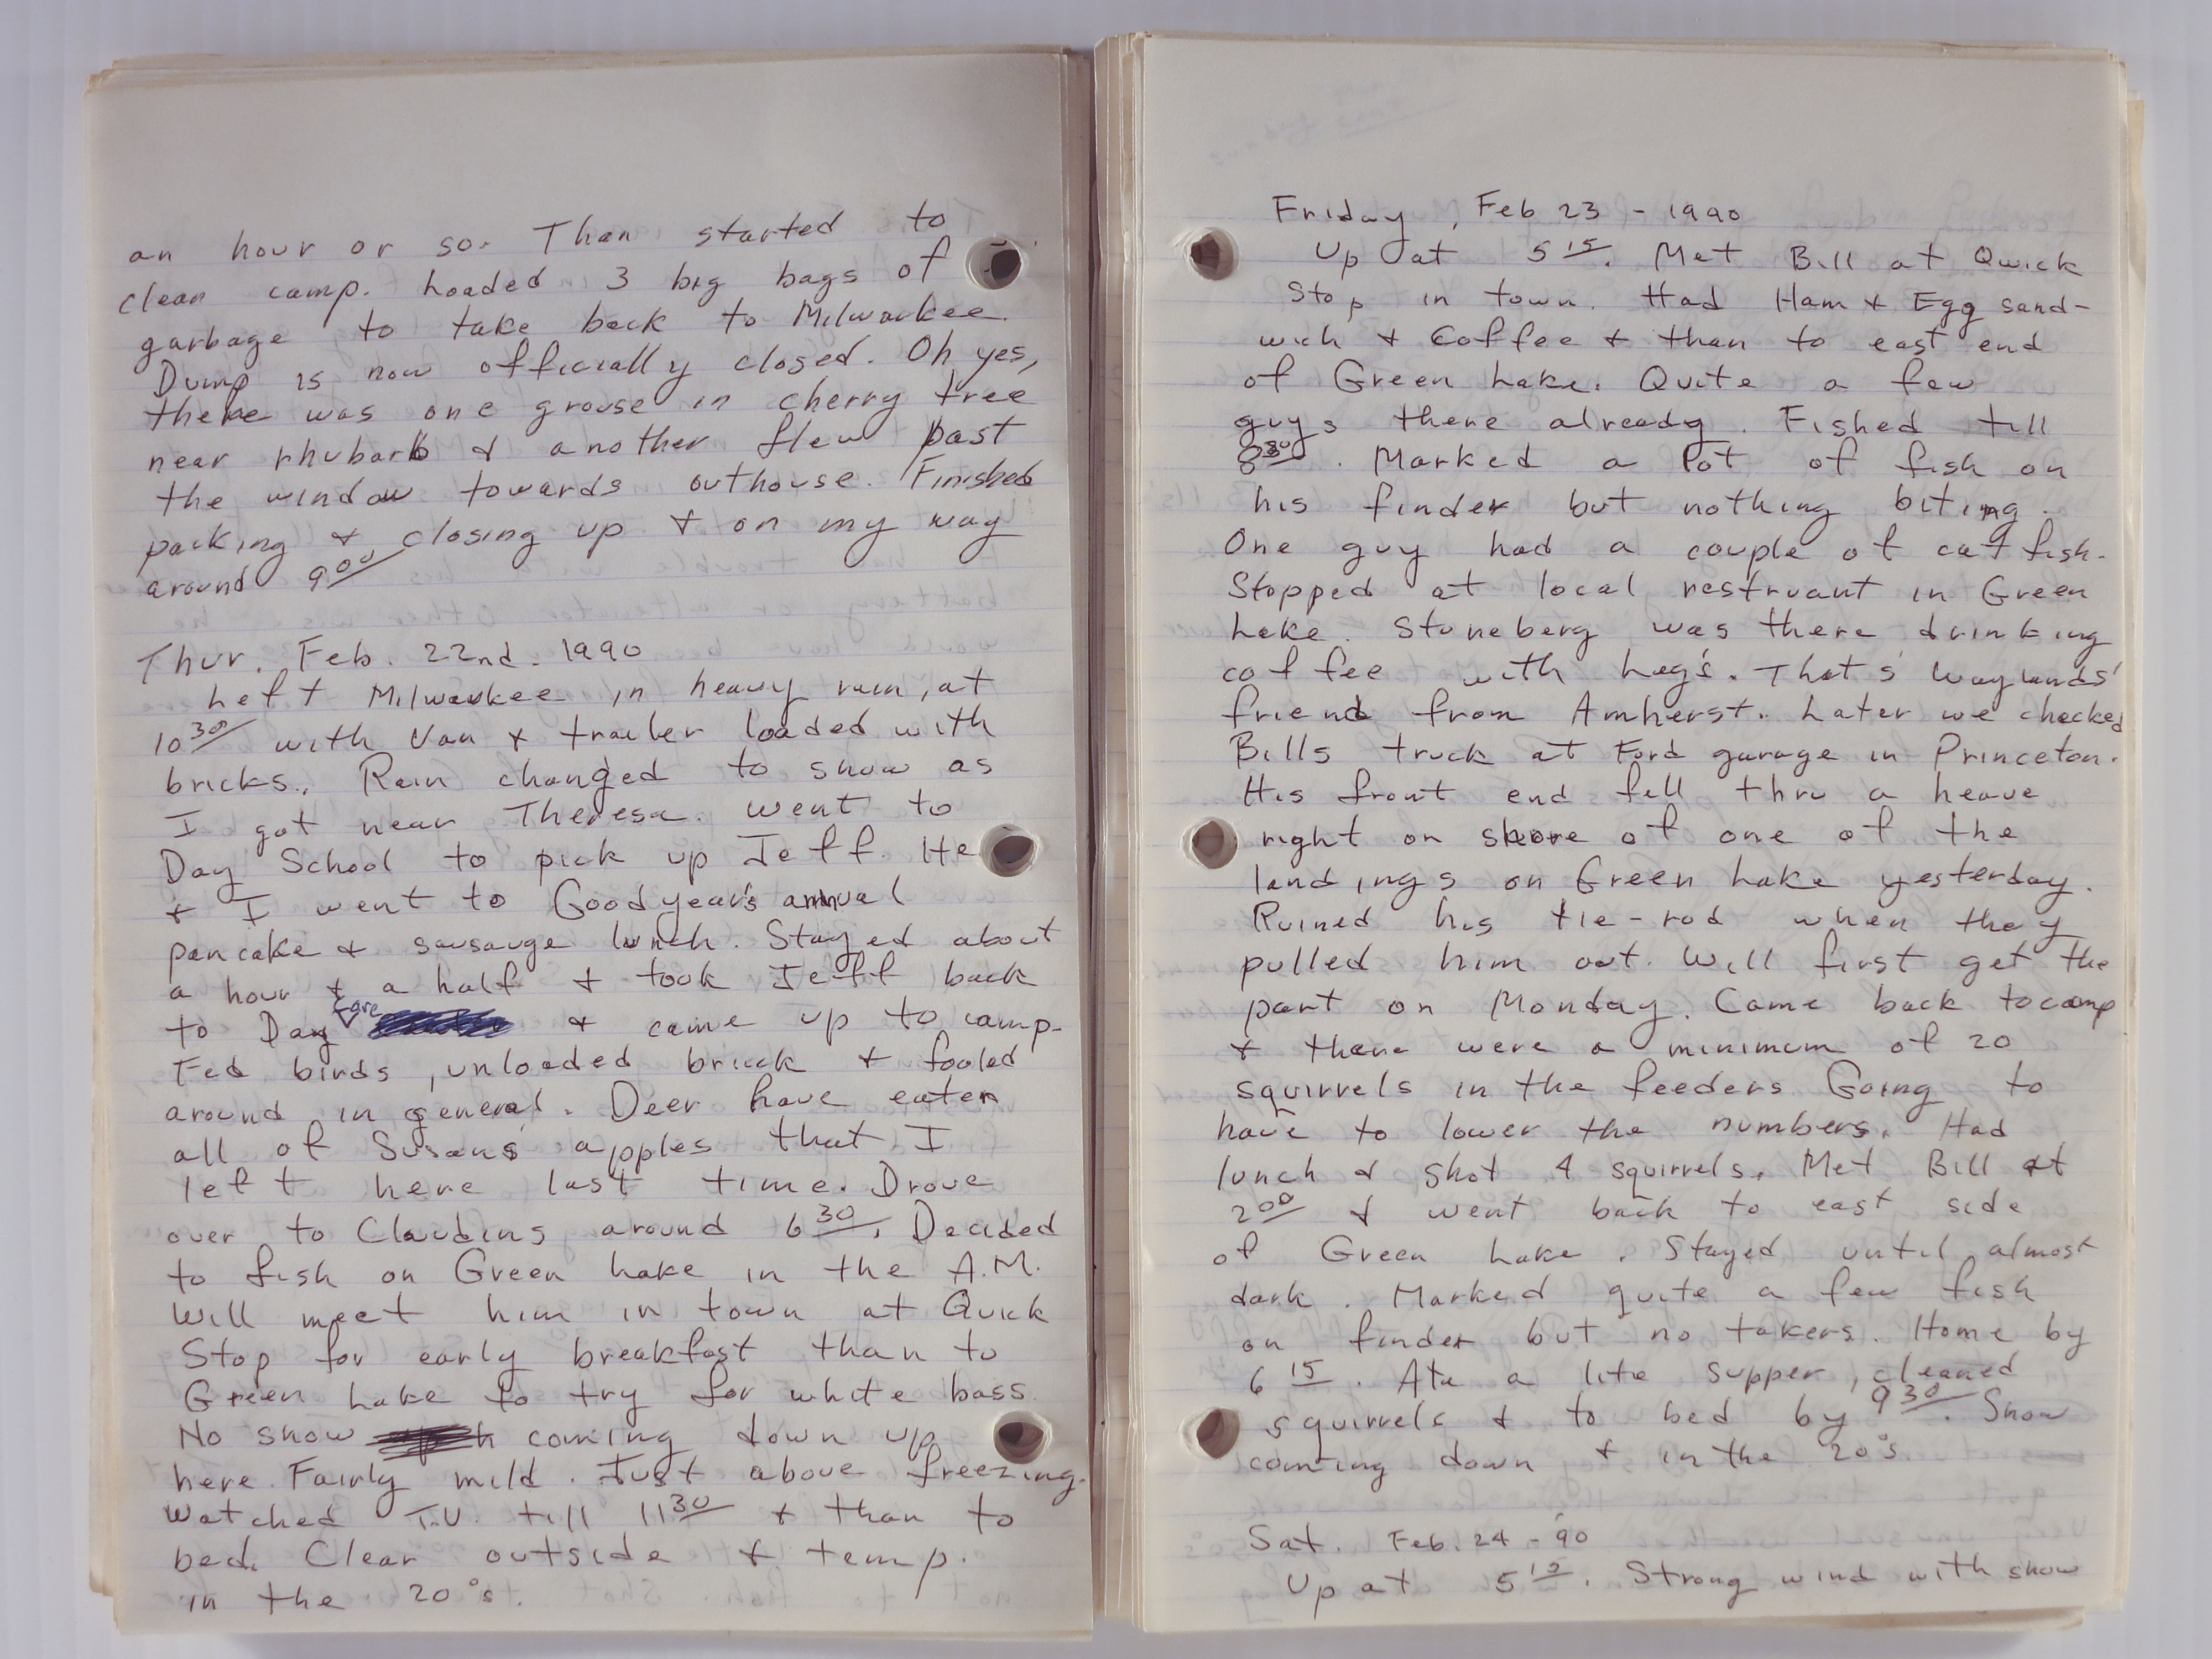 an hour or so. Than started to
clean camp. Loaded 3 big bags of
garbage to take back to Milwaukee.
Dump is now officially closed. Oh yes,
there was one grouse in cherry tree
near rhubarb & another flew past
the window towards outhouse. Finished
packing & closing up & on my way
around 9 00
Thur. Feb. 22nd. 1990
Left Milwaukee in heavy rain, at
10 30 with Van & trailer loaded with
bricks. Rain changed to snow as
I got near Theresa. Went to
Day School to pick up Jeff. He
& I went to Goodyear's annual
pancake & sausauge lunch. Stayed about
a hour & a half & took Jeff back
to Day Care & came up to camp.
Fed birds, unloaded brick & fooled
around in general. Deer have eaten
all of Susan's apples that I
left here last time. Drove
over to Claudins around 6 30. Decided
to fish on Green Lake in the A.M.
Will meet him in town at Quick
Stop for early breakfast than to
Green Lake to try for white bass.
No snow coming down up
here. Fairly mild. Just above freezing.
Watched T.V. till 11 30 & than to
bed. Clear outside & temp.
in the 20°s.
Friday, Feb 23 - 1990
Up at 5 15. Met Bill at Qwick
Stop in town. Had Ham & Egg sand-
wich & Coffee & than to east end
of Green Lake. Quite a few
guys there already. Fished till
8 30. Marked a lot of fish on
his finder but nothing biting.
One guy had a couple of catfish.
Stopped at local restruant in Green
Lake. Stoneberg was there drinking
coffee with Leg's. That's Waylands'
friend from Amherst. Later we checked
Bills truck at Ford garage in Princeton.
His front end fell thru a heave
right on shore of one of the
landings on Green Lake yesterday.
Ruined his tie-rod when they
pulled him out. Will first get the
part on Monday. Came back to camp
& there were a minimum of 20
squirrels in the feeders. Going to
have to lower the numbers. Had
lunch & shot 4 squirrels. Met Bill at
2 00 & went back to east side
of Green Lake. Stayed until almost
dark. Marked quite a few fish
on finder but no takers. Home by
6 15. Ate a lite supper, cleaned
squirrels & to bed by 9 30. Snow
coming down & in the 20°s.
Sat. Feb. 24 - '90
Up at 5 15. Strong wind with snow